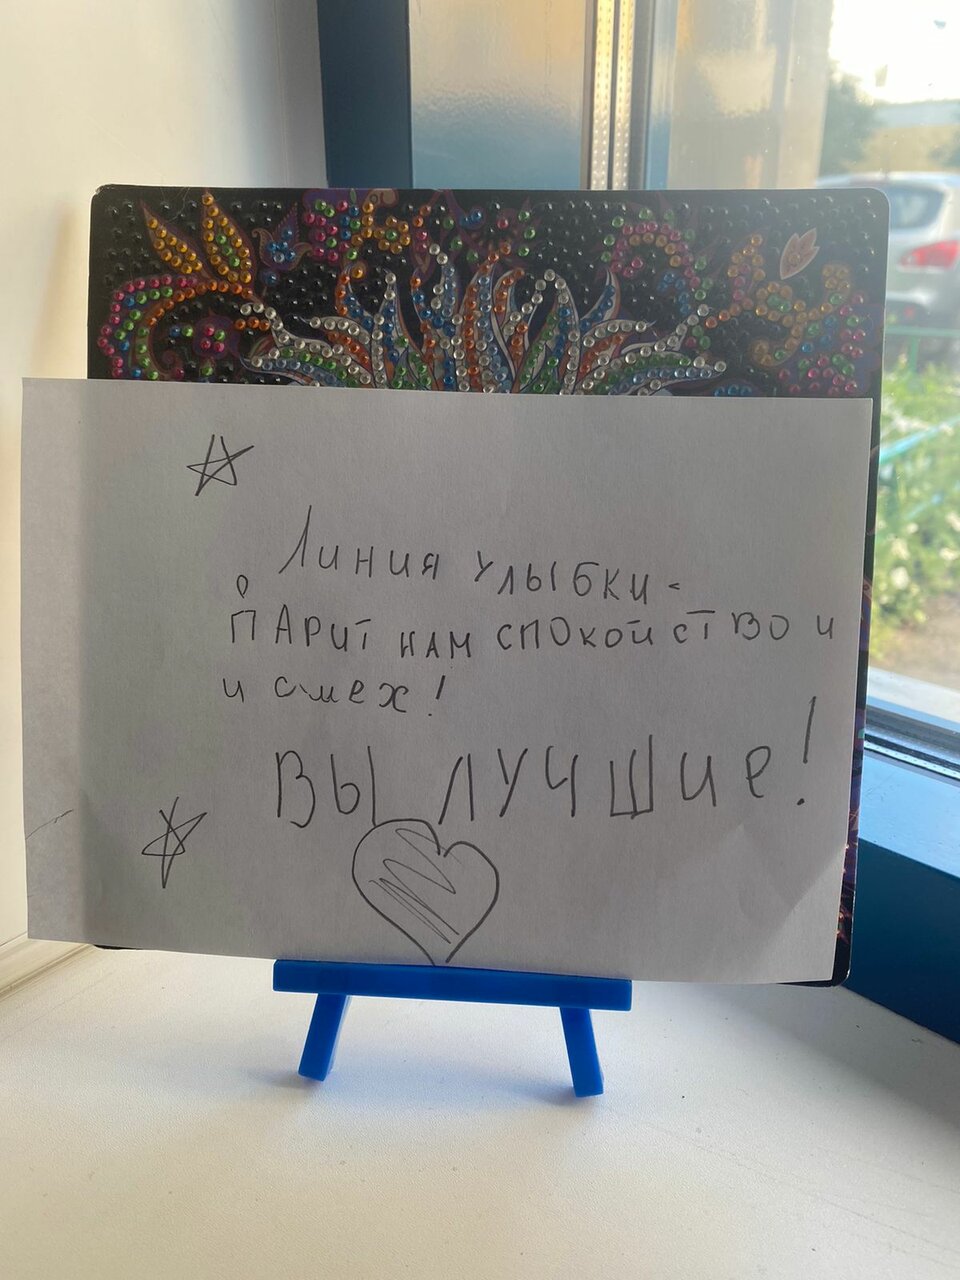 Линия улыбки -
ПАРИТ НАМ СПОКОЙСТВО И
и смех!
ВЫ ЛУЧШИЕ!